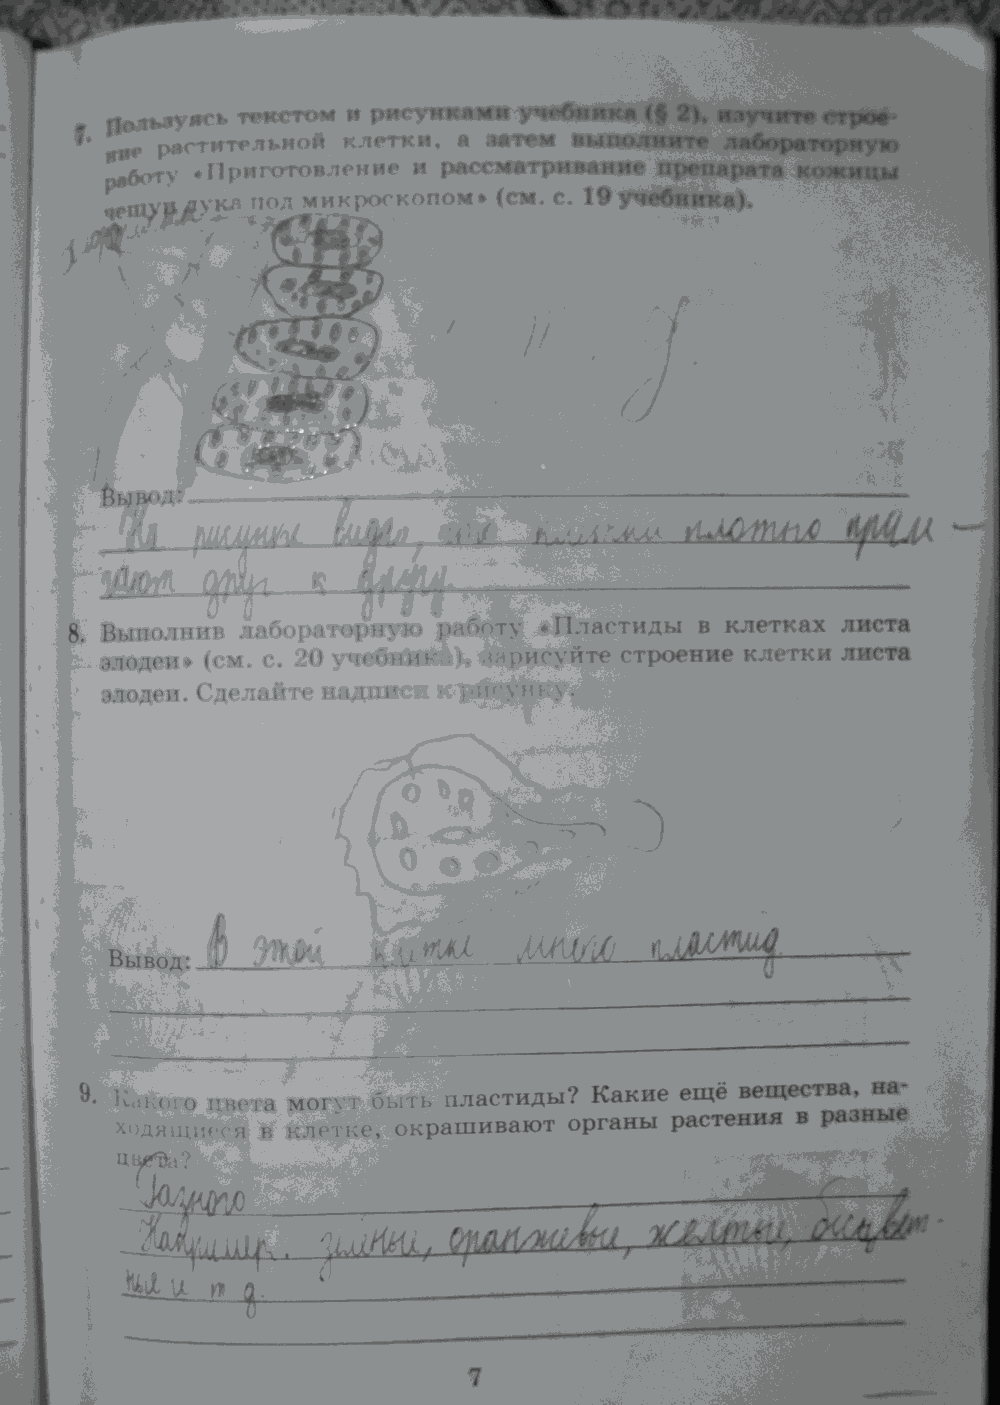 7. Пользуясь текстом и рисунками учебника (§ 2), изучите строе-
ние растительной клетки, а затем выполните лабораторную
работу «Приготовление и рассматривание препарата кожицы
чешуи лука под микроскопом» (см. с. 19 учебника).
Вывод:
На рисунке видно, что клетки плотно прим-
зают друг к другу.
8. Выполнив лабораторную работу «Пластиды в клетках листа
элодеи» (см. с. 20 учебника), зарисуйте строение клетки листа
элодеи. Сделайте надписи к рисунку.
Вывод: В этой клетке много пластид
9. Какого цвета могут быть пластиды? Какие ещё вещества, на-
ходящиеся в клетке, окрашивают органы растения в разные
цвета?
Разного
Например. зелёные, оранжевые, желтые, бесцвет-
ные и т д.
7